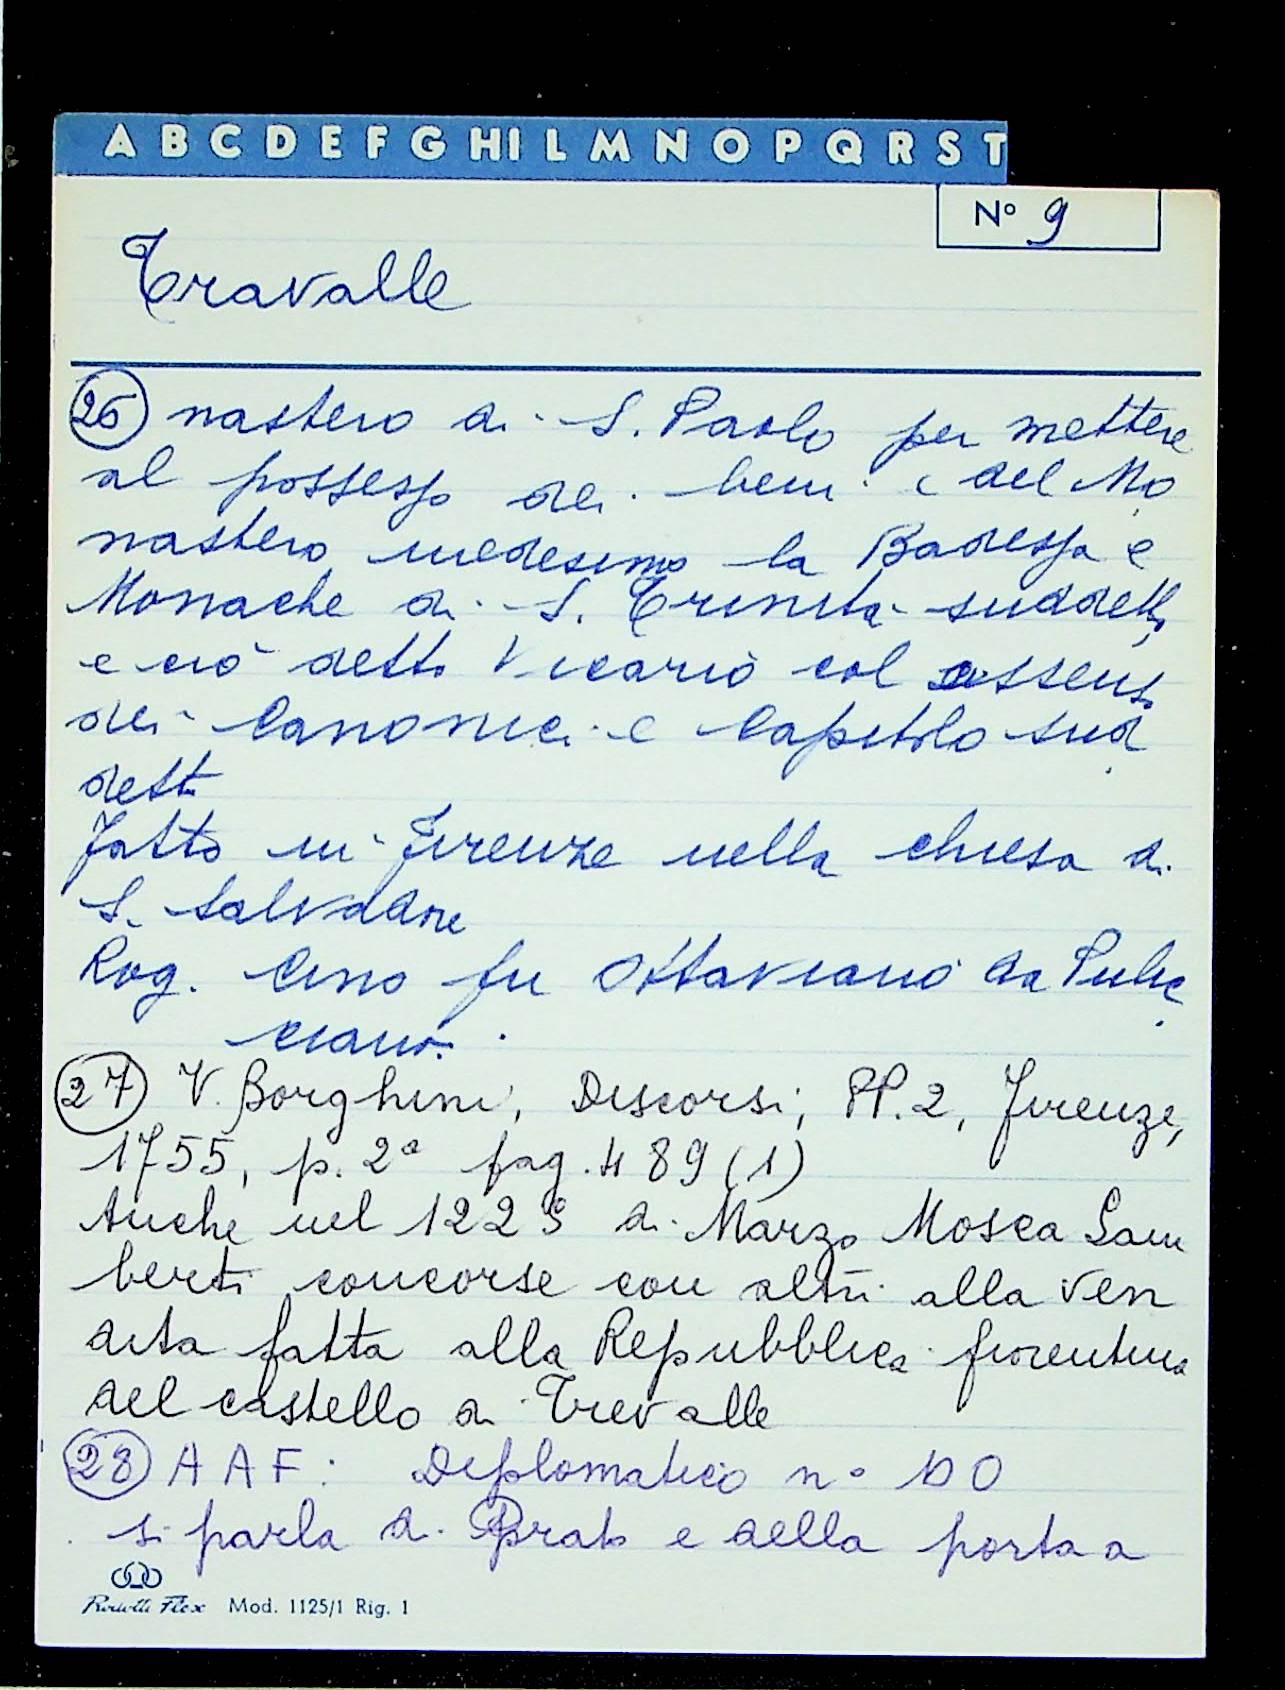 A B C D E F G H I L M N O P Q R S T
N° 9
Travalle
26 nastero di S. Paolo per mettere
al possesso dei beni del Mo
nastero medesimo la Badessa e
Monache di S. Trinita suddette,
e ciò detto Vicario col assenso
dei Canonici e Capitolo sud
detti
Fatto in Firenze nella chiesa di
S. Salvadore
Rog. Cino fu Ottaviano da Pulic
ciano.
27 V. Borghini, Discorsi, PP. 2, Firenze,
1755, p. 2a pag. 489 (1)
Anche nel 1225 di Marzo Mosca Lam
berti concorse con altri alla ven
dita fatta alla Repubblica fiorentina
del castello di Trevalle
28 A A F: Diplomatico n°
si parla di Prato e della porta a
Mod. 1125/1 Rig. 1